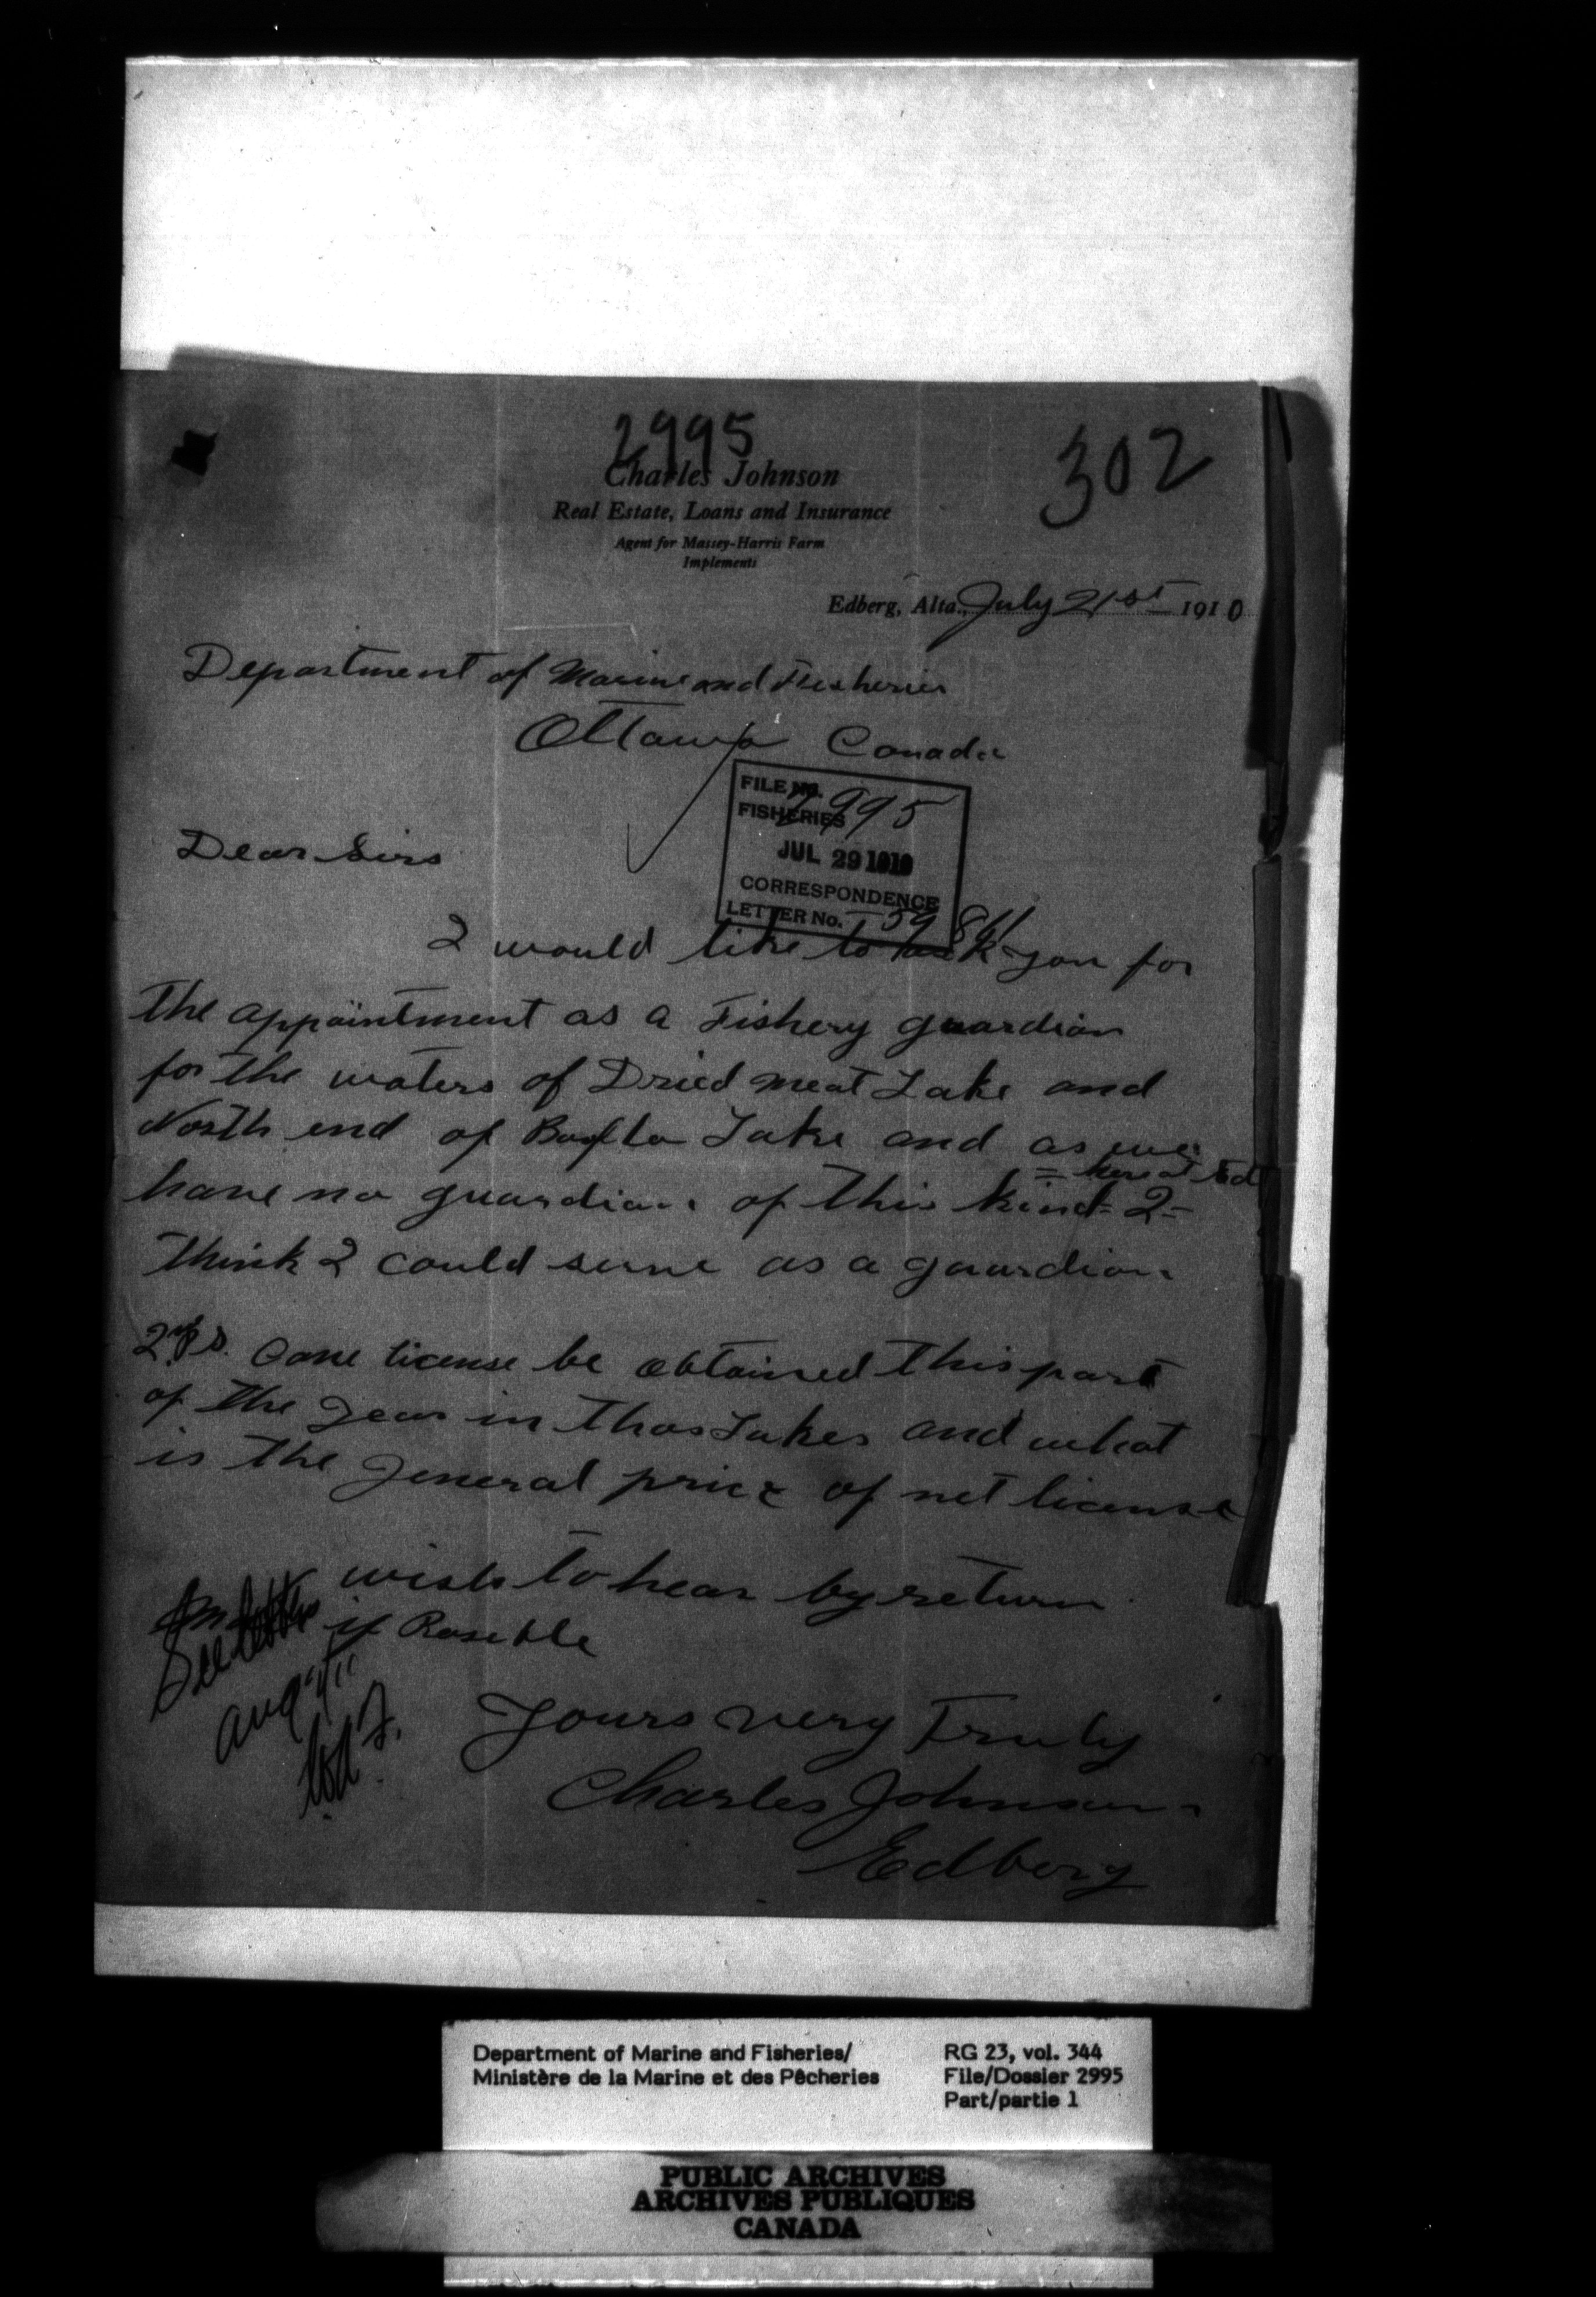 2995
302
Charles Johnson
Real Estate, Loans and Insurance
Agent for Massey-Harris Farm
Implements
Edberg, Alta., July 21st 1910
Department of Marine and Fisheries
Ottawa Canada
FILE NO. 2995
FISHERIES
JUL 29 1910
CORRESPONDENCE
LETTER No. 59861
Dear Sirs
I would like to ask you for
the appointment as a Fishery guardian
for the waters of Dried meat Lake and
North end of Lake and as we
= here at Ed
have no guardian of this kind = I =
think I could serve as a guardian
2 P.S. Cane license be obtained this part
of the year in thos Lakes and what
is the general price of net license
wish to hear by return
if Possible
See letter
Aug
Yours very Truly
Charles Johnson
Edberg
Department of Marine and Fisheries/
Ministère de la Marine et des Pêcheries
RG 23, vol. 344
File/Dossier 2995
Part/partie 1
PUBLIC ARCHIVES
ARCHIVES PUBLIQUES
CANADA